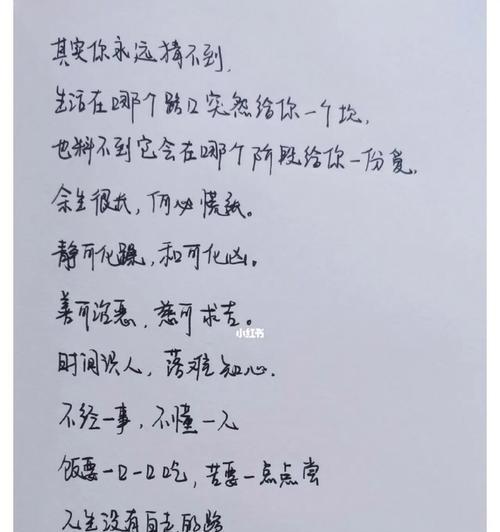 其实你永远猜不到,
生活在哪个路口突然给你一个坎,
也料不到它会在哪个阶段给你一份宽,
余生很长,何必慌张。
静可化躁,和可化凶。
善可治恶,慈可求吉。
小红书
时间识人,落难知心.
不经一事,不懂一人
饭要一口一口吃,苦要一点点尝
人生没有白走的路